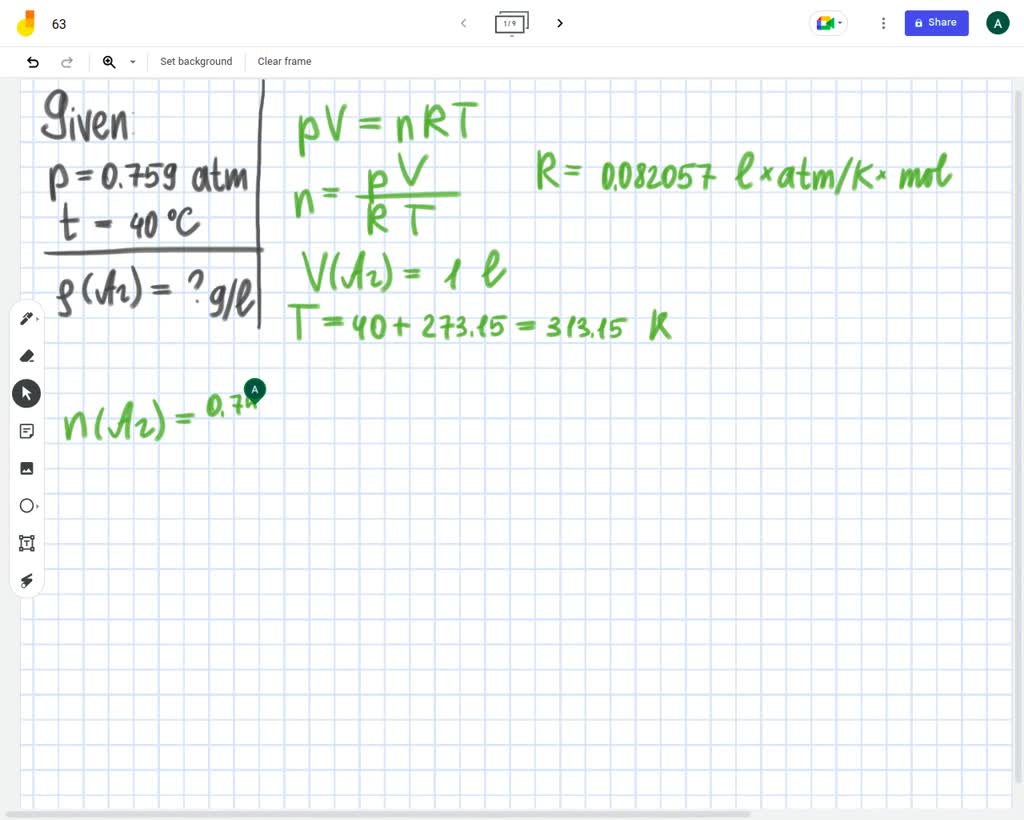 63
1/9
Share
A
Set background
Clear frame
Given:
p = 0.759 atm
t = 40 °C
ρ(Ar) = ? g/l
pV = nRT
n = pV / RT
R = 0.082057 l × atm/K × mol
V(Ar) = 1 l
T = 40 + 273.15 = 313.15 K
A
n(Ar) = 0.7
T